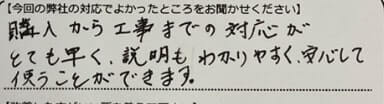 【今回の弊社の対応でよかったところをお聞かせください】
購入から工事までの対応が
とても早く、説明もわかりやすく、安心して
使うことができます。